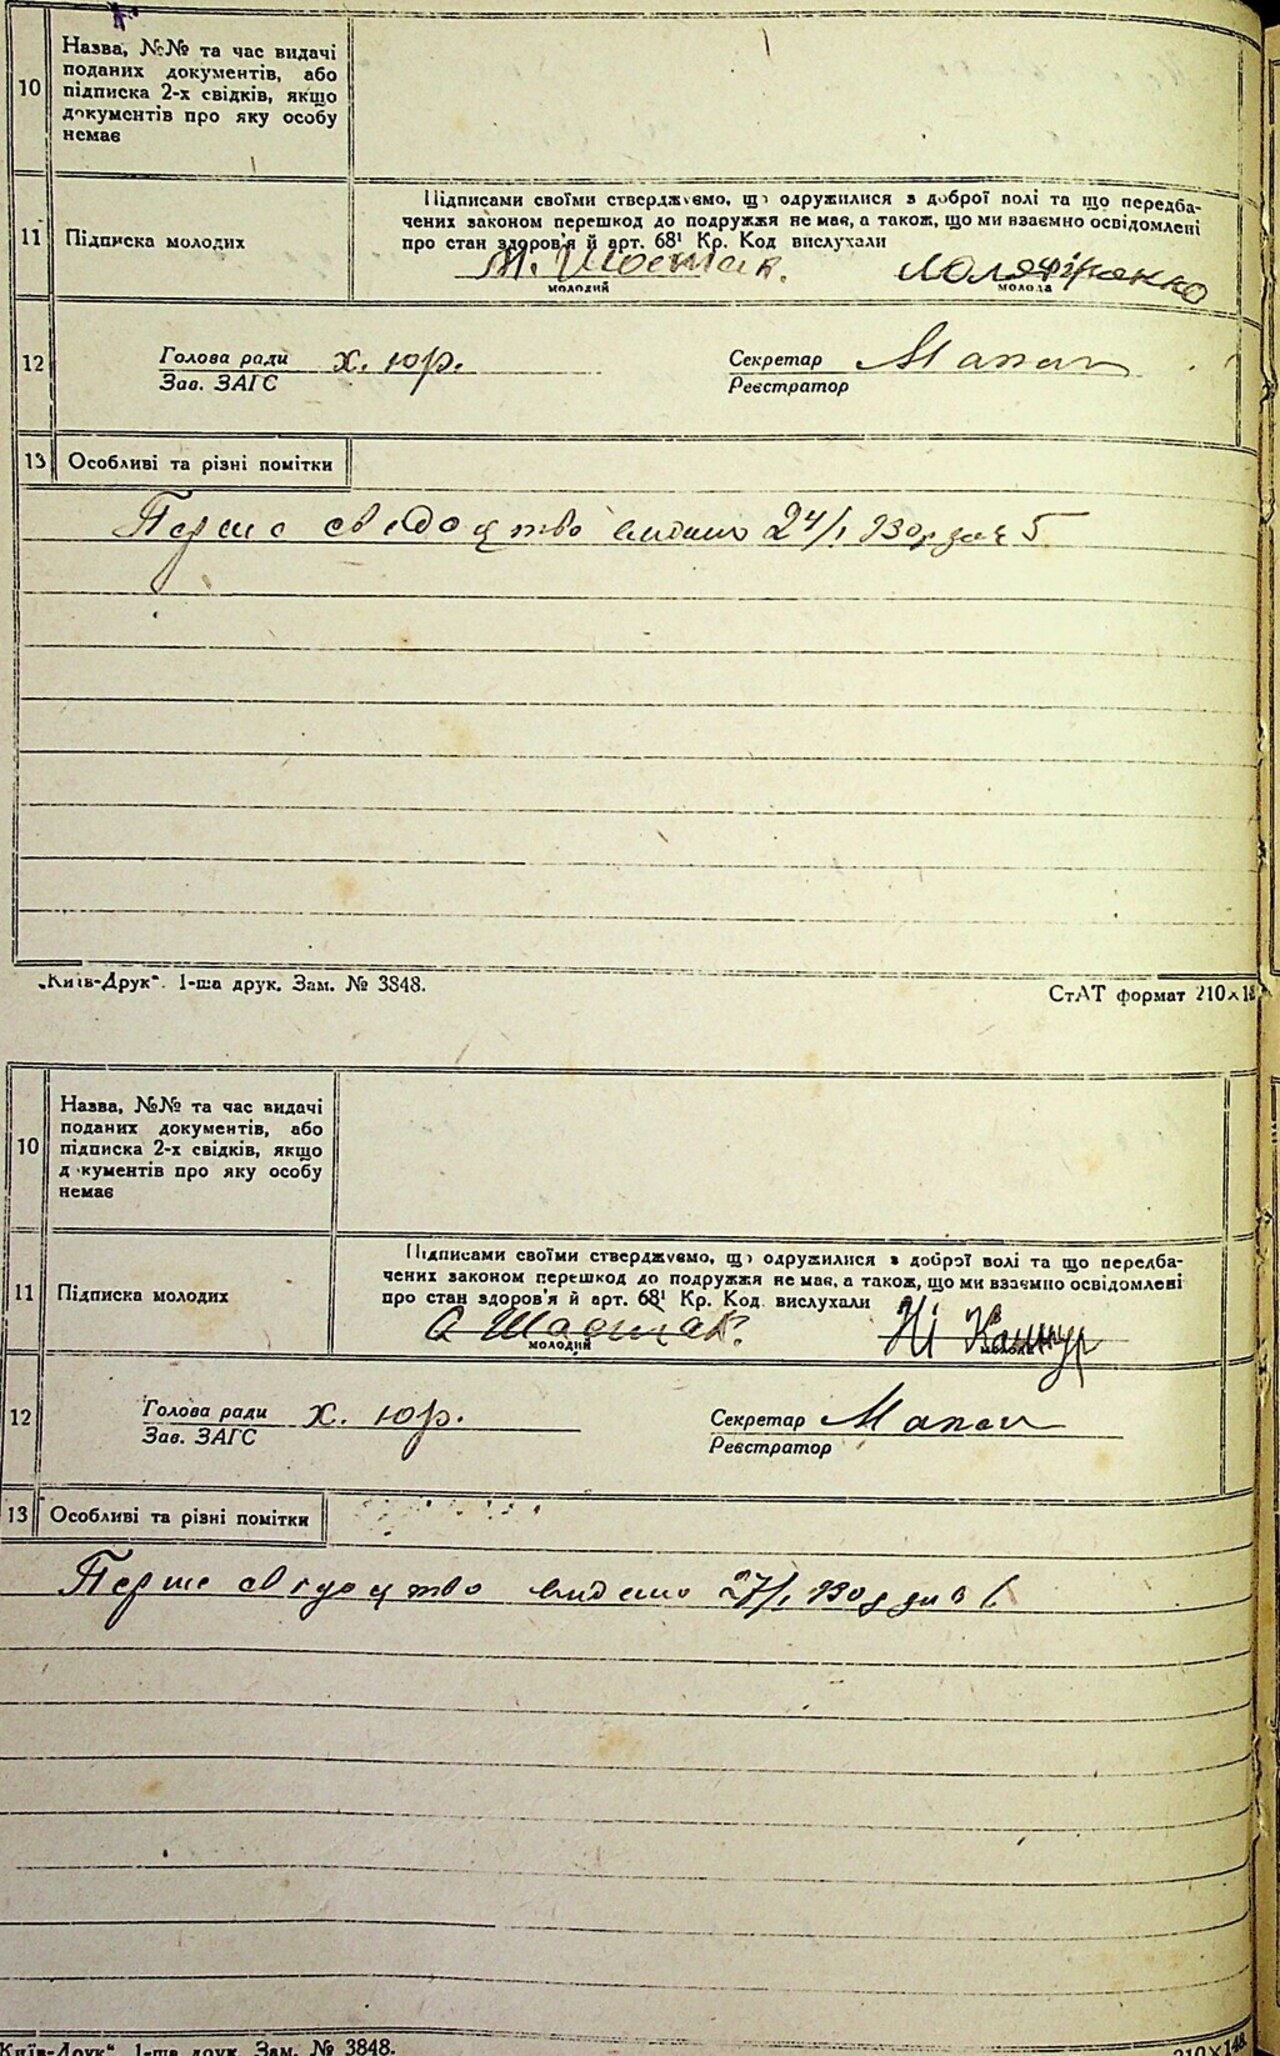 10
Назва, №№ та час видачі
поданих документів, або
підписка 2-х свідків, якщо
документів про яку особу
немає
11
Підписка молодих
Підписами своїми стверджуємо, що одружилися з доброї волі та що передба-
чених законом перешкод до подружжя немає, а також, що ми взаємно освідомлені
про стан здоров'я й арт. 68¹ Кр. Код вислухали
М. Шостак.
молодий
молода
12
Голова ради х. юр.
Зав. ЗАГС
Секретар
Реєстратор
13
Особливі та різні помітки
Перше свідоцтво видано 24/I 930р за № 5
„Київ-Друк“. 1-ша друк. Зам. № 3848.
СтАТ формат 210×14
10
Назва, №№ та час видачі
поданих документів, або
підписка 2-х свідків, якщо
документів про яку особу
немає
11
Підписка молодих
Підписами своїми стверджуємо, що одружилися з доброї волі та що передба-
чених законом перешкод до подружжя немає, а також, що ми взаємно освідомлені
про стан здоров'я й арт. 68¹ Кр. Код вислухали
Шостак.
молодий
молода
12
Голова ради х. юр.
Зав. ЗАГС
Секретар
Реєстратор
13
Особливі та різні помітки
Перше свідоцтво видано 27/I 930р
„Київ-Друк“. 1-ша друк. Зам. № 3848.
210×148